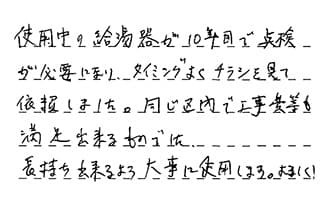 使用中の給湯器が10年目で点検
が必要に到り、タイミングよくチラシを見て
依頼しました。同じ区内で工事費等も
満足出来るものでした。
長持ち出来るよう大事に使用します。